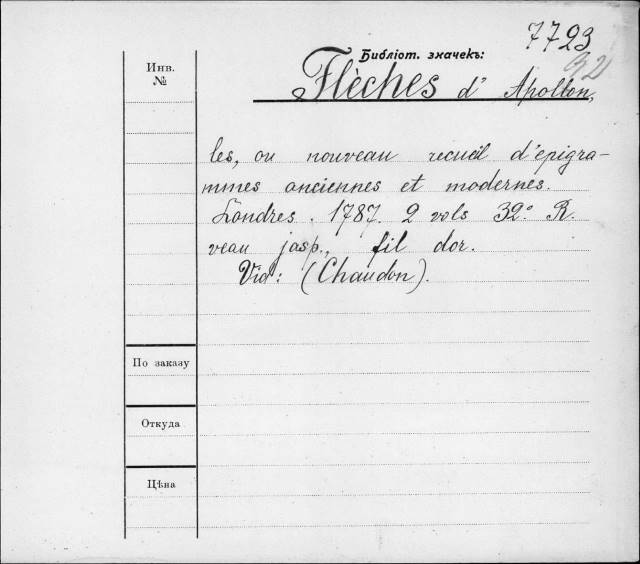 7723
32
Библіот. значекъ:
Инв.
№
Flèches d' Apollon,
les, ou nouveau recueil d'epigra-
mmes anciennes et modernes.
Londres. 1787. 2 vols 32.º R.
veau jasp., fil dor.
Vid: (Chaudon).
По заказу
Откуда
Цѣна